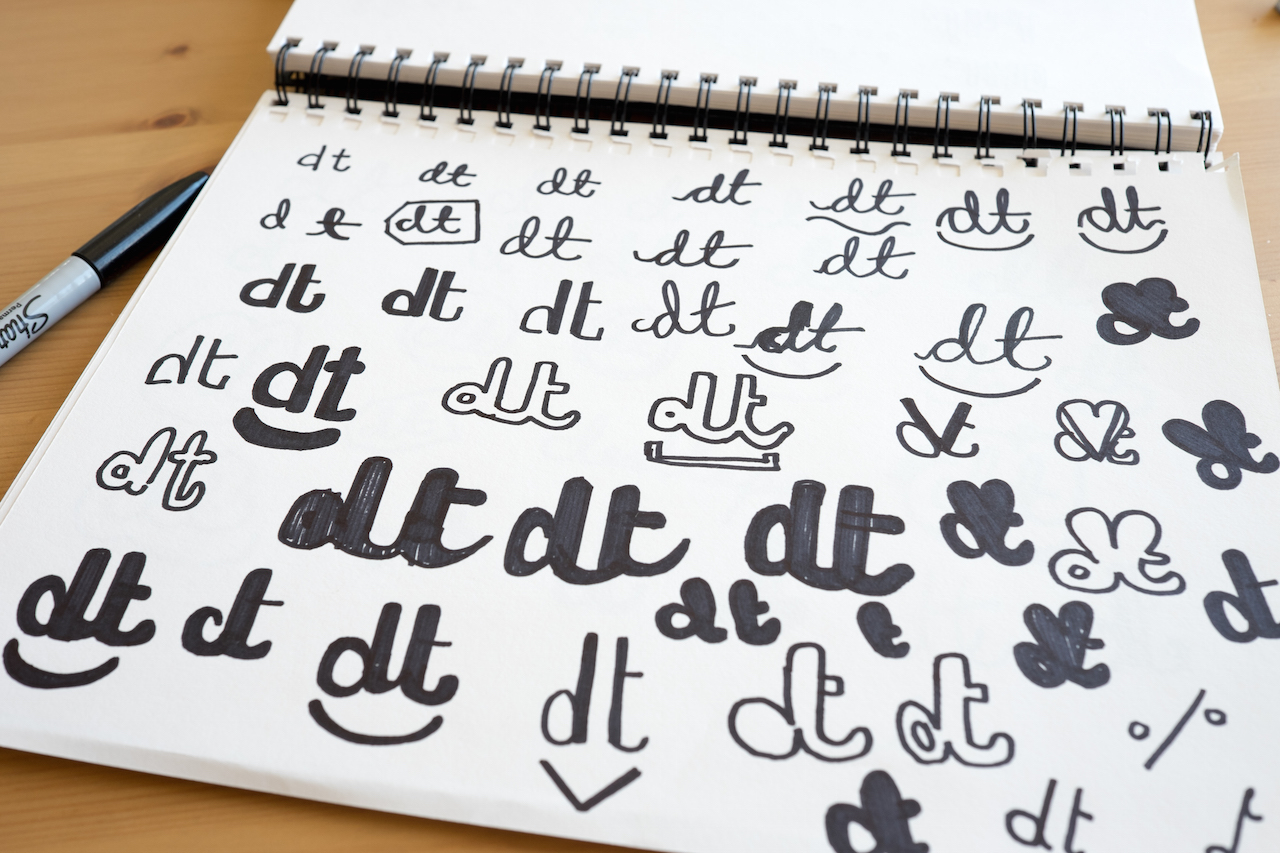 dt dt dt dt dt dt dt
d t dt dt dt dt
dt dt dt dt dt dt dt
dt dt dt dt dt dt dt
dt dt dt dt dt dt
dt dt dt dt t dt dt
dt dt dt %
dt dt
Sha
Perma